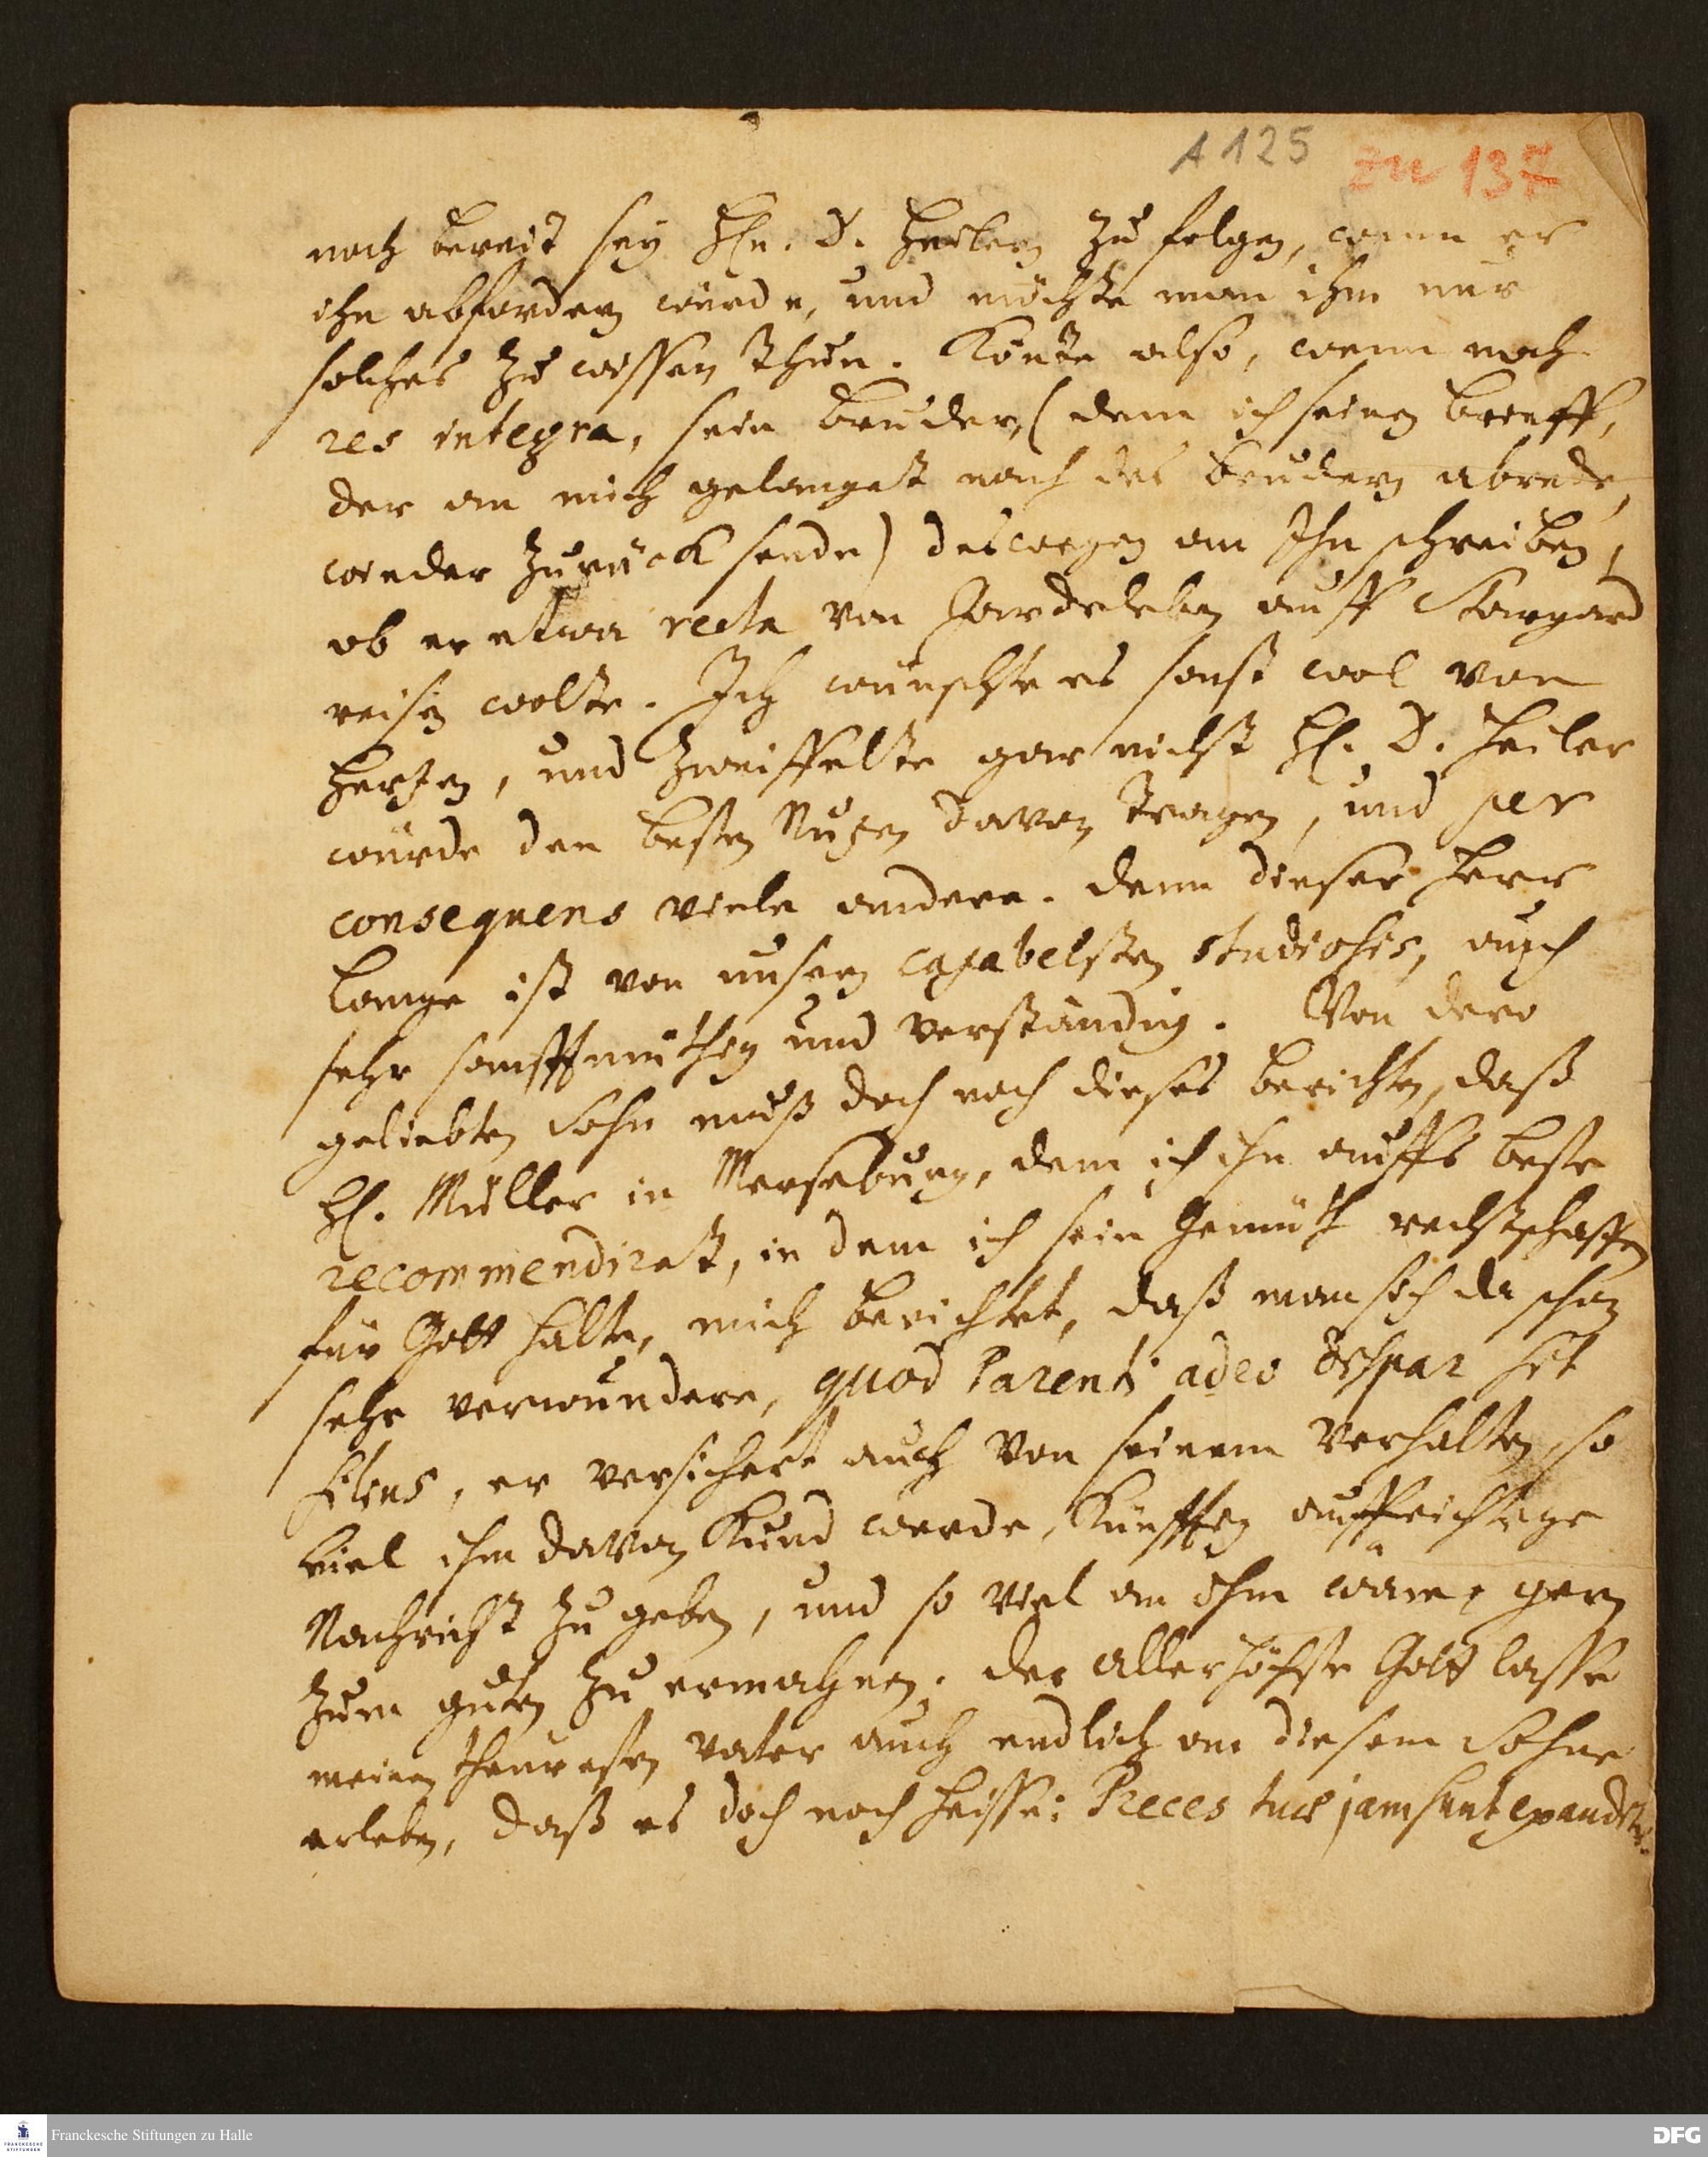 A 125 zu 137
noch bereit sey Hn. D. Heilern zu folgen, wenn er
ihn abfordern würde, und möchte man ihm nur
solches zu wissen thun. Könte also, wenn noch
res integra, sein Bruder, (dem ich seinen Brieff,
der an mich gelanget nach des Brudern abrede,
wieder zurück sende) deswegen an Ihn schreiben,
ob er etwa recta von Gardeleben auff Stargard
reisen wolte. Ich wünschte es sonst wol von
Hertzen, und zweiffelte gar nicht H. D. Heiler
würde den besten Nutzen davon tragen, und per
consequens viele andere. denn dieser Herr
Lange ist von unsern capabelsten studiosis, auch
sehr sanfftmüthig und verständig. Von dero
geliebten Sohn muß doch noch dieses berichten, daß
H. Müller in Merseburg, dem ich ihn auffs beste
recommendiret, in dem ich sein Gemüth rechtschaffen
für Gott halte, mich berichtet, daß man sich da schon
sehr verwundere, quod Parenti adeo dispar sit
filius, er versichert auch von seinem Verhalten, so
viel ihm davon kund werde, künfftig auffrichtige
Nachricht zu geben, und so viel an ihm wäre, gern
zum guten zu ermahnen. der allerhöchste Gott lasse
meinen theuresten Vater auch endlich an diesem Sohne
erleben, daß es doch noch heisse: Preces tuæ jam sunt exauditæ.
Franckesche Stiftungen zu Halle
DFG